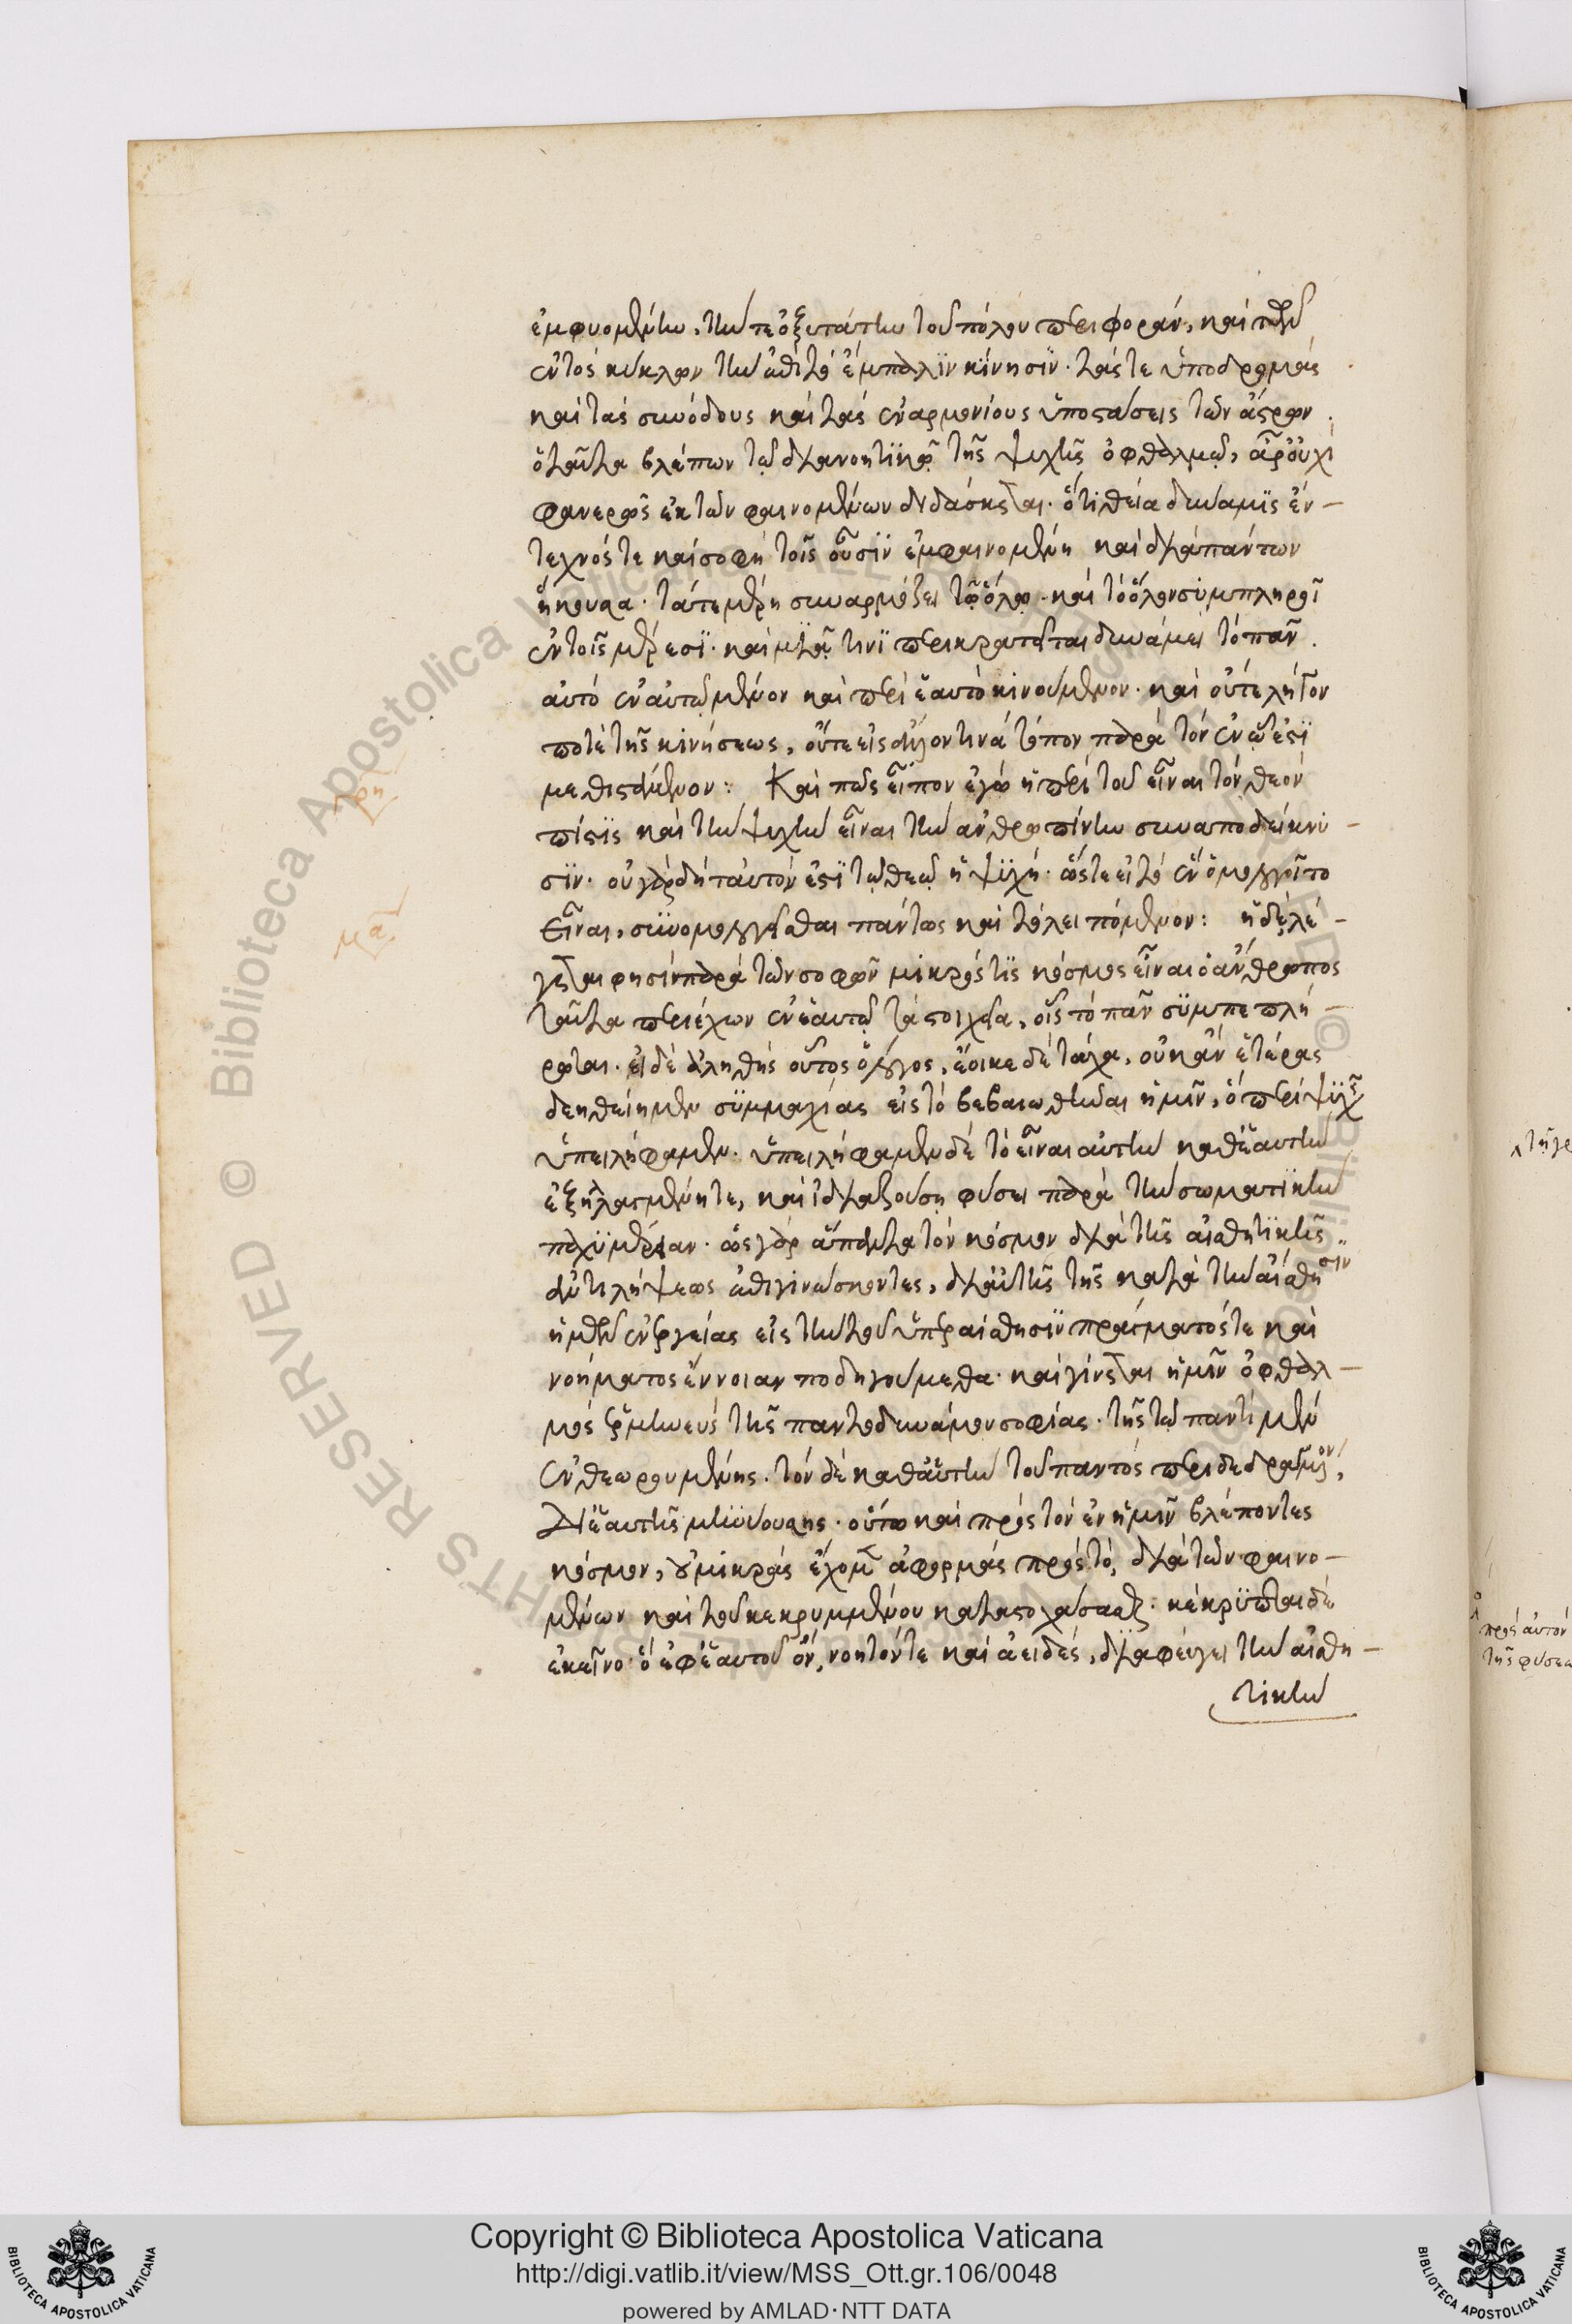 ἐμφυομένην, τήν τε ὀξυτάτην τοῦ πόλου περιφοράν, καὶ τῶν
ἐντὸς κύκλων τὴν ἐπὶ τὸ ἔμπαλϊν κίνησϊν. τάς τε ὑποδρομὰς
καὶ τὰς συνόδους καὶ τὰς ἐναρμονίους ὑποστάσεις τῶν ἄστρων.
ὁ ταῦτα βλέπων τῷ διανοητϊκῷ τῆς ψυχῆς ὀφθαλμῷ, ἆρ' οὐχὶ
φανερῶς ἐκ τῶν φαινομένων διδάσκεται. ὅτι θεία δύναμϊς ἔν-
τεχνός τε καὶ σοφὴ τοῖς οὖσϊν ἐμφαινομένη καὶ διὰ πάντων
ἥκουσα. τά τε μέρη συναρμόζει τῷ ὅλῳ. καὶ τὸ ὅλον συμπληροῖ
ἐν τοῖς μέρεσϊ. καὶ μιᾷ τινϊ περικρατεῖται δυνάμει τὸ πᾶν.
αὐτὸ ἐν αὐτῷ μένον καὶ περὶ ἑαυτὸ κινούμενον. καὶ οὔτε λῆγον
ποτὲ τῆς κινήσεως, οὔτε εἰς ἄλλον τινὰ τόπον παρὰ τὸν ἐν ᾧ ἐστϊ
μεθιστάμενον: Καὶ πῶς εἶπον ἐγὼ ἡ περὶ τοῦ εἶναι τὸν θεὸν
πίστϊς καὶ τὴν ψυχὴν εἶναι τὴν ἀνθρωπίνην συναποδείκνυ-
σϊν. οὐ γὰρ δὴ ταὐτόν ἐστϊ τῷ θεῷ ἡ ψϋχή. ὥστε εἰ τὸ ἓν ὁμολογοῖτο
εἶναι, συνομολογεῖσθαι πάντως καὶ τὸ λειπόμενον: ἡ δὲ, λέ-
γεται φησὶν παρὰ τῶν σοφῶν μικρός τϊς κόσμος εἶναι ὁ ἄνθρωπος
ταῦτα περιέχων ἐν ἑαυτῷ τὰ στοιχεῖα, οἷς τὸ πᾶν σϋμπεπλή-
ρωται. εἰ δὲ ἀληθὴς οὗτος ὁ λόγος, ἔοικε δὲ τάχα, οὐκ ἂν ἑτέρας
δεηθείημεν σϋμμαχίας εἰς τὸ βεβαιωθῆναι ἡμῖν, ὃ περὶ ψϋχῆς
ὑπειλήφαμεν. ὑπειλήφαμεν δὲ τὸ εἶναι αὐτὴν καθ' ἑαυτὴν
ἐξηλλαγμένη τε, καὶ ἰδιαζούσῃ φύσει παρὰ τὴν σωματϊκὴν
παχϋμέρειαν. ὡς γὰρ ἅπαντα τὸν κόσμον διὰ τῆς αἰσθητϊκῆς
ἀντιλήψεως ἐπιγινώσκοντες, δι' αὐτῆς τῆς κατὰ τὴν αἴσθησιν
ἡμῶν ἐνεργείας εἰς τὴν τοῦ ὑπὲρ αἴσθησϊν πράγματός τε καὶ
νοήματος ἔννοιαν ποδηγούμεθα. καὶ γίνεται ἡμῖν ὀφθαλ-
μὸς ἑρμηνεὺς τῆς παντοδυνάμου σοφίας. τῆς τῷ παντὶ μὲν
ἐνθεωρουμένης. τὸν δὲ καθ' αὑτὴν τοῦ παντὸς περιδεδραγμένον,
δι' ἑαυτῆς μηνϋούσης. οὕτω καὶ πρὸς τὸν ἐν ἡμῖν βλέποντες
κόσμον, οὐ μικρὰς ἔχομεν ἀφορμὰς πρὸς τὸ, διὰ τῶν φαινο-
μένων καὶ τοῦ κεκρυμμένου καταστοχάσασθαι. κέκρϋπται δὲ
ἐκεῖνο. ὃ ἐφ' ἑαυτοῦ ὄν, νοητόν τε καὶ ἀειδὲς, διαφεύγει τὴν αἰσθη-
τικὴν
Copyright © Biblioteca Apostolica Vaticana
http://digi.vatlib.it/view/MSS_Ott.gr.106/0048
powered by AMLAD·NTT DATA